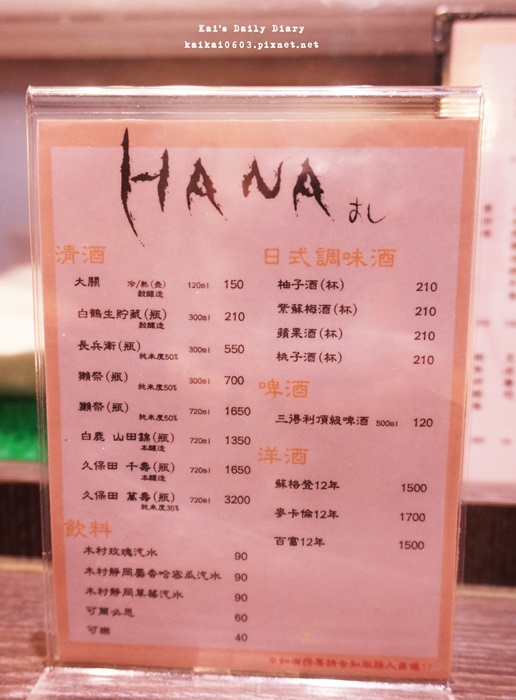 Kai's Daily Diary
kaikai0603.pixnet.net
HANA
はし
清酒
大關 冷/熱(壺) 120ml 150
釀釀造
白鶴生貯藏(瓶) 300ml 210
釀釀造
長兵衛(瓶) 300ml 550
純米度50%
獺祭(瓶) 300ml 700
純米度50%
獺祭(瓶) 720ml 1650
純米度50%
白鹿 山田錦(瓶) 720ml 1350
本釀造
久保田 千壽(瓶) 720ml 1650
本釀造
久保田 萬壽(瓶) 720ml 3200
純米度35%
飲料
木村玫瑰汽水 90
木村靜岡麝香哈密瓜汽水 90
木村靜岡草莓汽水 90
可爾必思 60
可樂 40
日式調味酒
柚子酒(杯) 210
紫蘇梅酒(杯) 210
蘋果酒(杯) 210
桃子酒(杯) 210
啤酒
三得利頂級啤酒 500ml 120
洋酒
蘇格登12年 1500
麥卡倫12年 1700
百富12年 1500